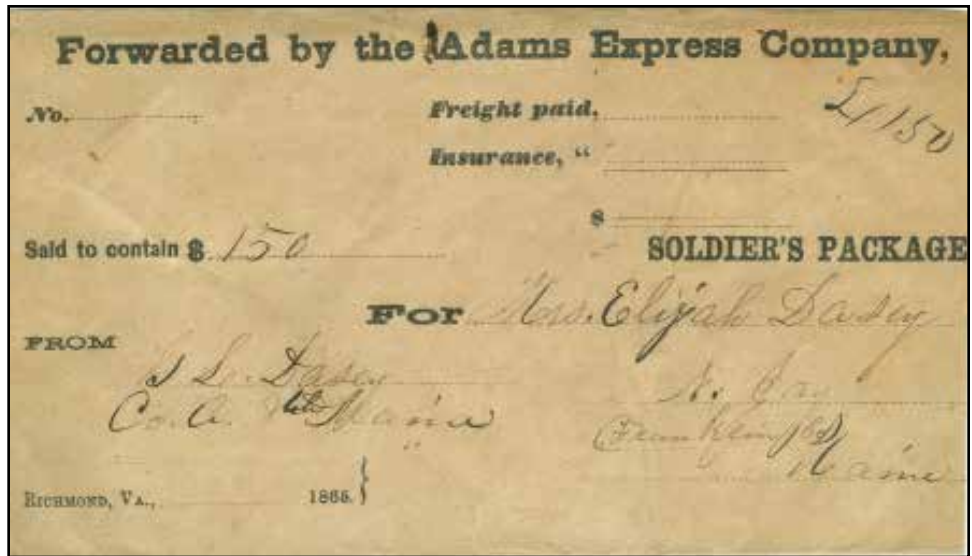 Forwarded by the Adams Express Company,
No.
Freight paid,
150
Insurance, “
$
Said to contain $ 150
SOLDIER'S PACKAGE
For Mrs. Elijah Dasey
FROM
S L. Dasey
N. Jay
Co. A. Maine
Franklin
Maine
RICHMOND, VA., 1865. }